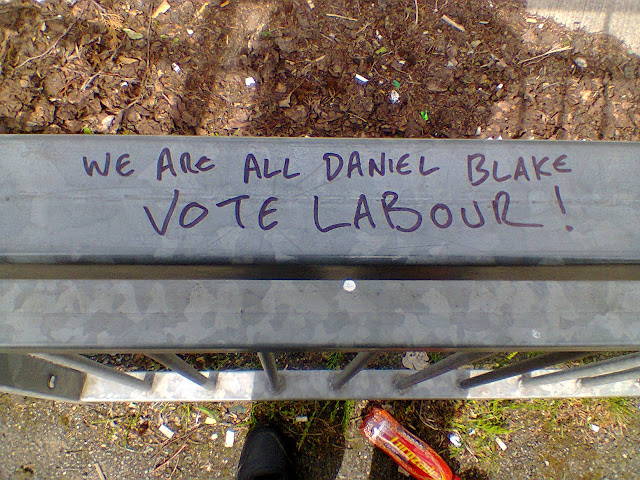 WE ARE ALL DANIEL BLAKE
VOTE LABOUR!
Lucozade